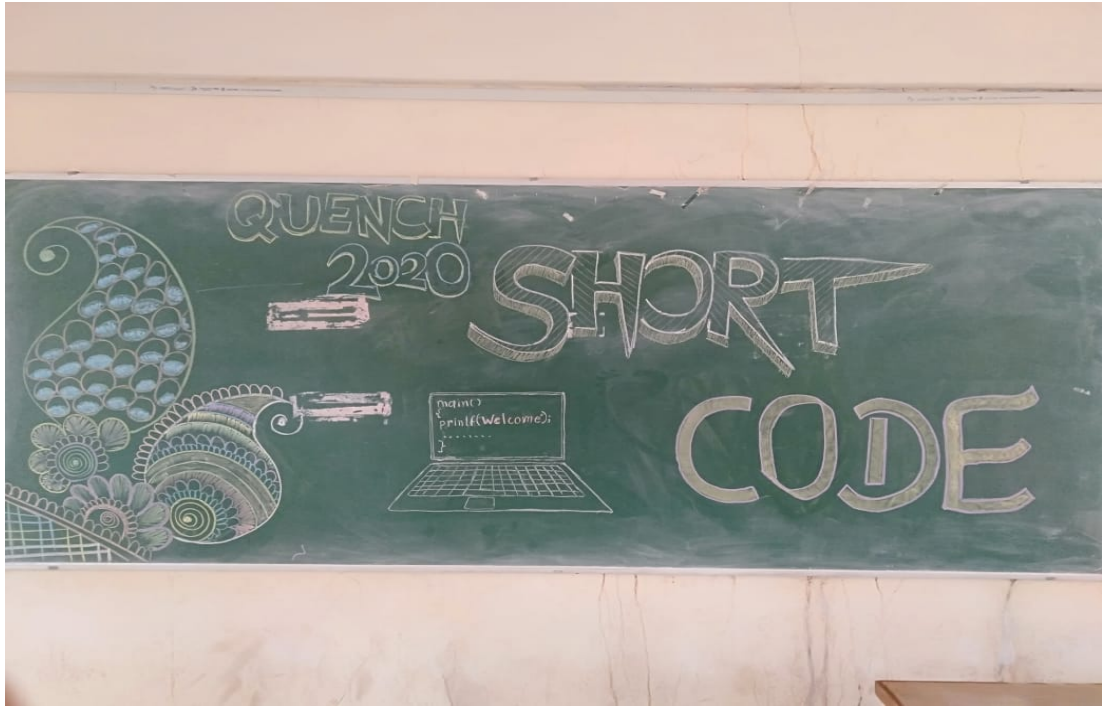 QUENCH
2020
SHORT
CODE
main()
{
printf(Welcome);
........
}